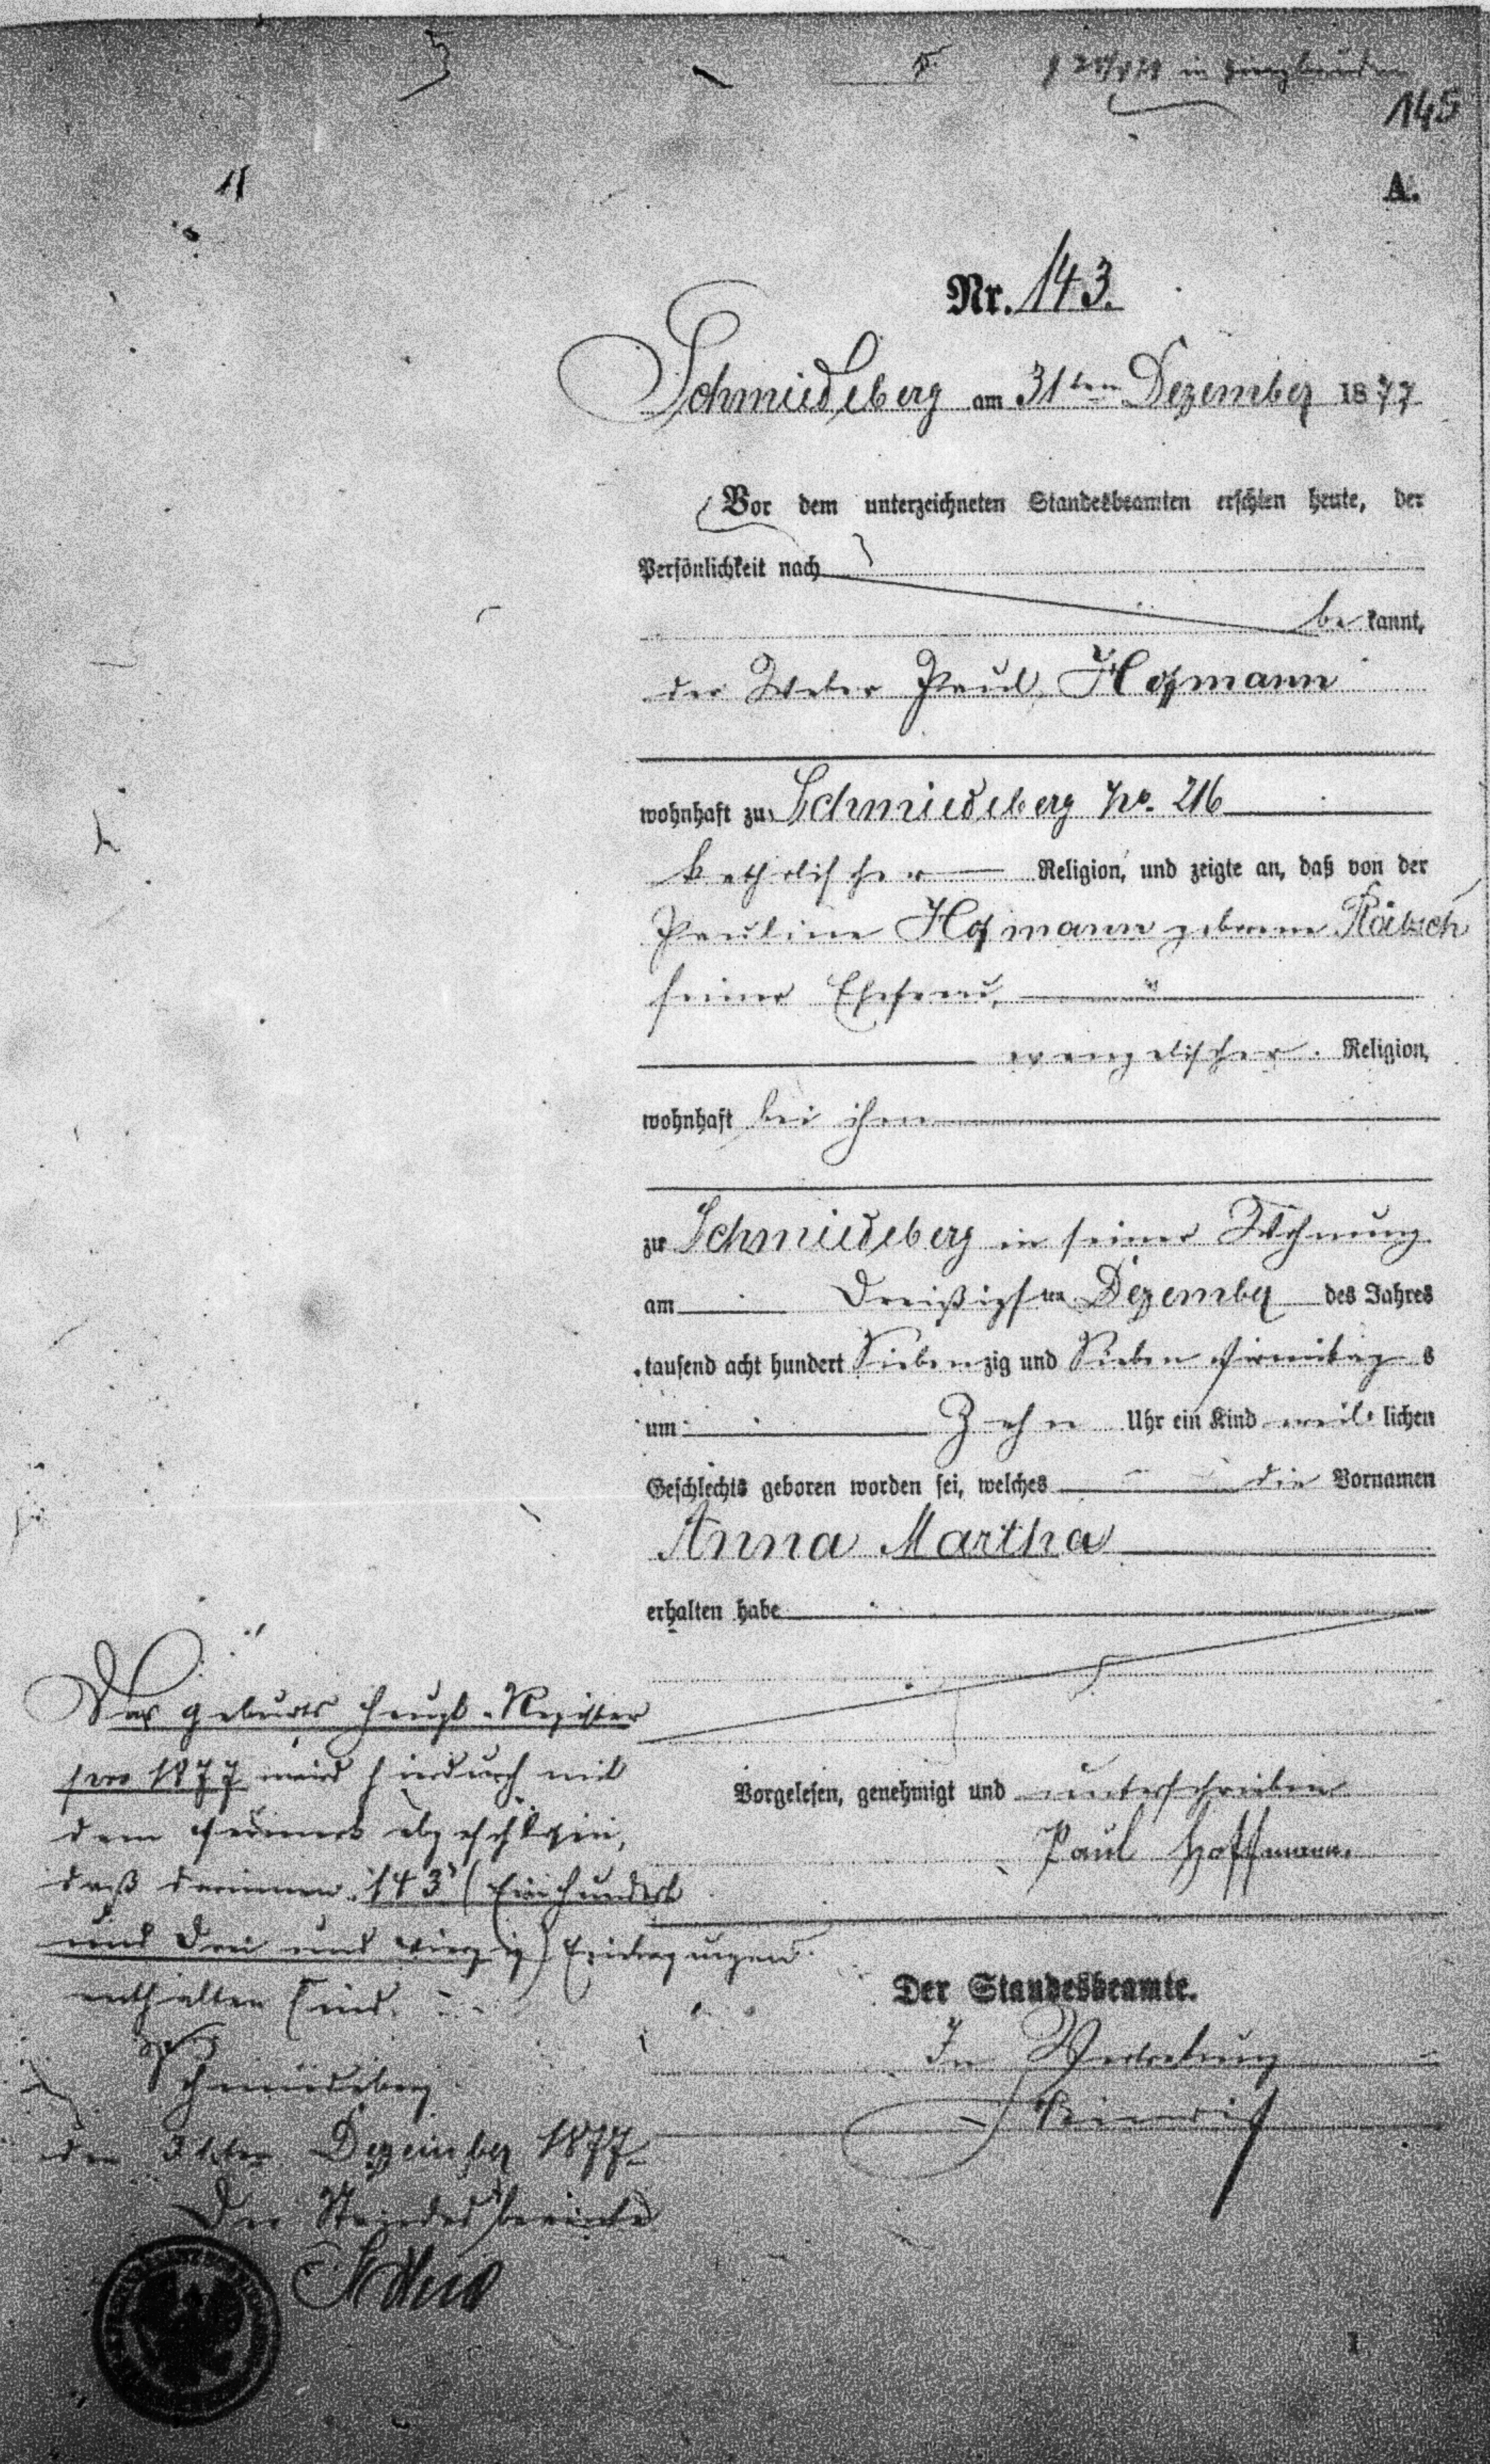 145
A.
Nr. 143.
Schmiedeberg am 31ten Dezember 1877
Vor dem unterzeichneten Standesbeamten erschien heute, der
Persönlichkeit nach
be kannt,
der Weber Paul Hoffmann
wohnhaft zu Schmiedeberg No. 216
katholischer Religion, und zeigte an, daß von der
Pauline Hoffmann geborene
seiner Ehefrau,
evangelischer Religion,
wohnhaft bei ihm
zu Schmiedeberg in seiner Wohnung
am Dreißigsten Dezember des Jahres
tausend acht hundert Siebenzig und Sieben Vormittags
um Zehn Uhr ein Kind weiblichen
Geschlechts geboren worden sei, welches die Vornamen
Anna Martha
erhalten habe
Vorgelesen, genehmigt und unterschrieben
Paul Hoffmann.
Der Standesbeamte.
In Vertretung
Das Geburts Haupt-Register
pro 1877 wird hierdurch mit
dem Vermerk abgeschlossen,
daß darinnen 143 (Einhundert
und Drei und vierzig) Eintragungen
enthalten sind.
Schmiedeberg
den 31ten Dezember 1877
Der Standesbeamte
1